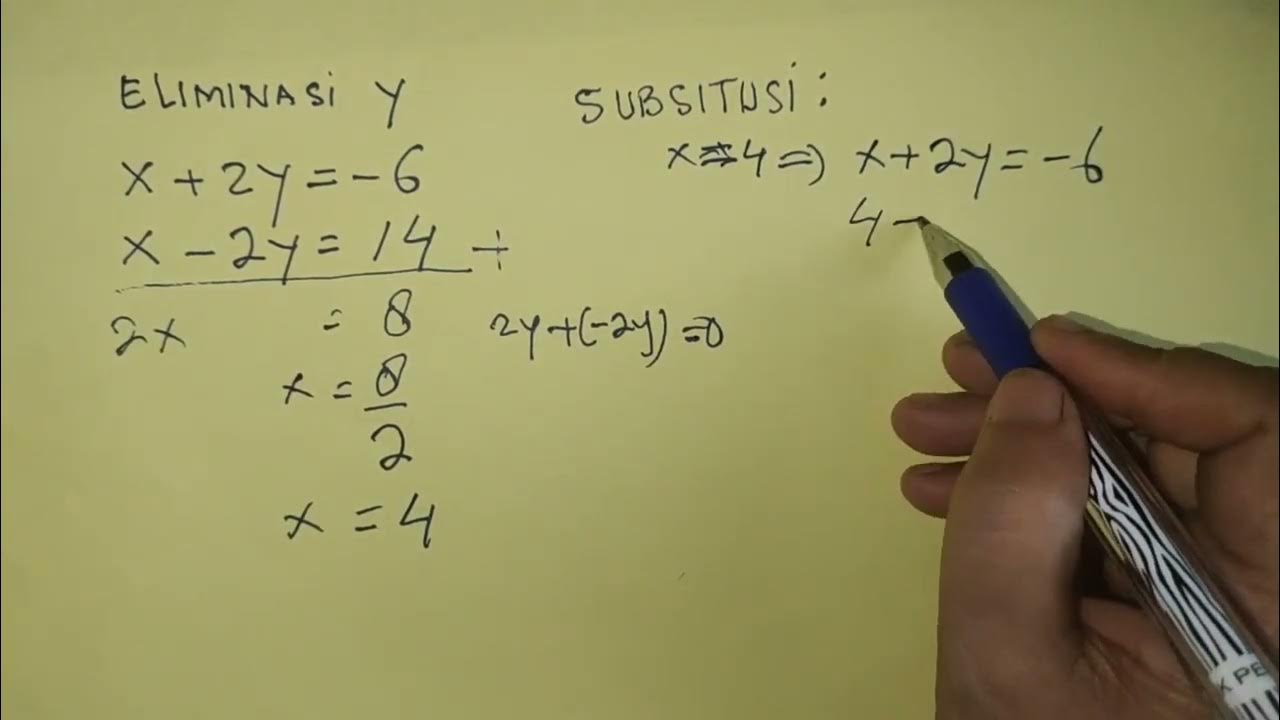 ELIMINASI Y
x + 2y = -6
x - 2y = 14 +
2x = 8
2y+(-2y)=0
x = 8/2
x = 4
SUBSITUSI :
x=4 => x+2y = -6
4 -
XPE